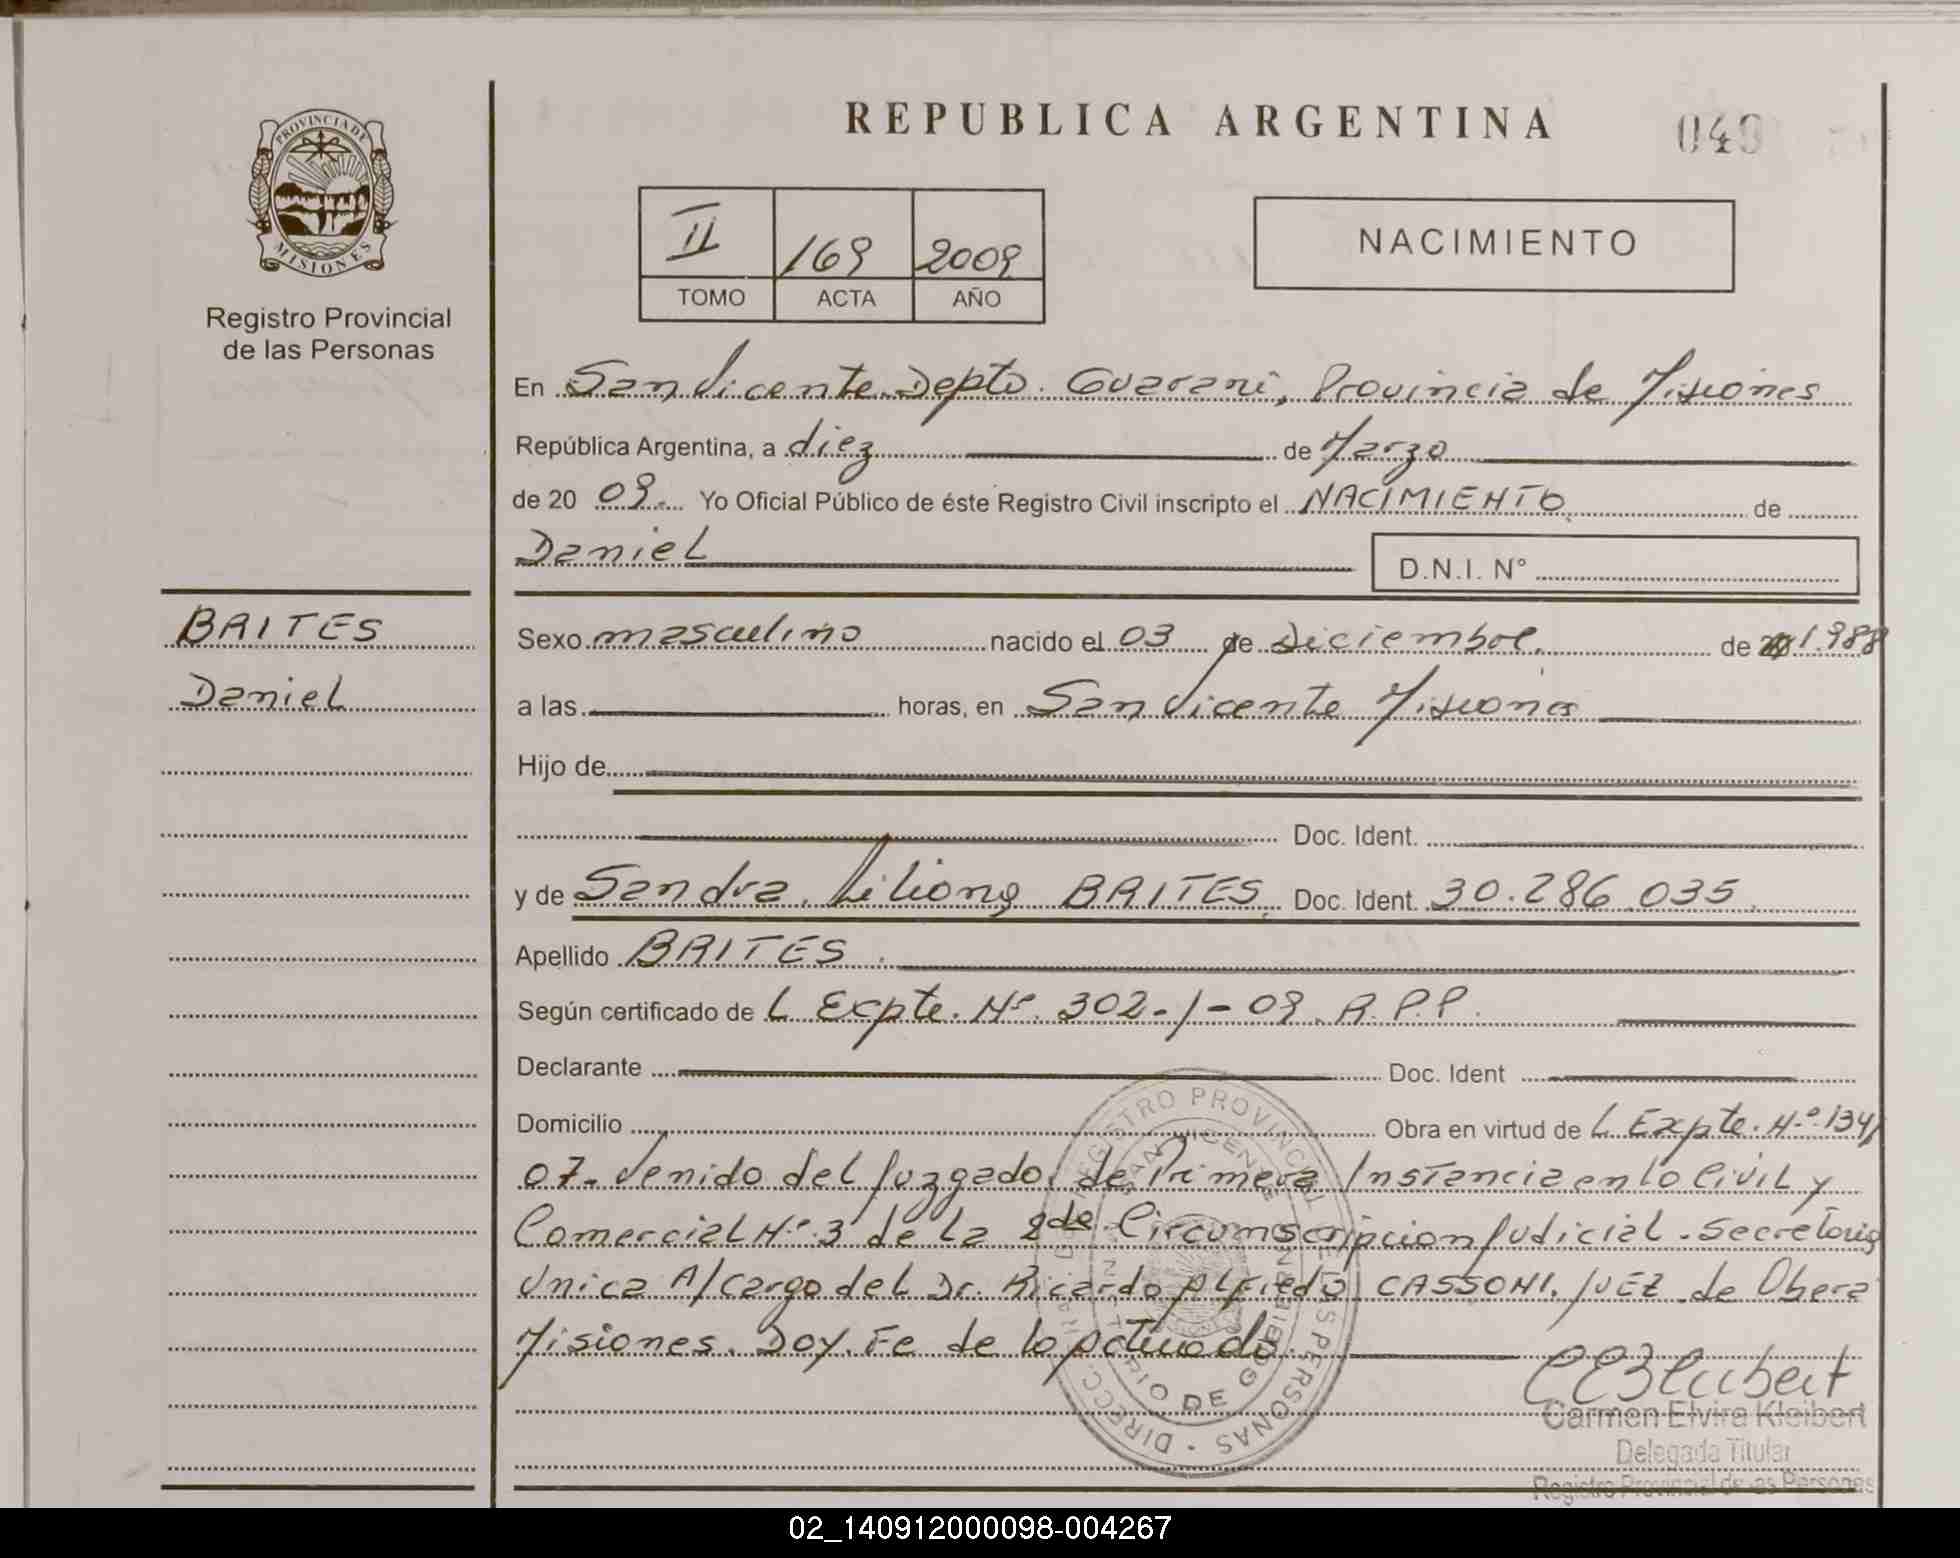 REPUBLICA ARGENTINA
049
PROVINCIA DE
MISIONES
Registro Provincial
de las Personas
II 169 2009
TOMO ACTA AÑO
NACIMIENTO
En San Vicente Depto. Guarani, Provincia de Misiones
República Argentina, a diez de Marzo
de 20 09. Yo Oficial Público de éste Registro Civil inscripto el NACIMIENTO de
Daniel
D.N.I. N°
BRITES
Daniel
Sexo masculino nacido el 03 de Diciembre. de 1.988
a las horas, en San Vicente Misiones
Hijo de
Doc. Ident.
y de Sandra Liliana BRITES Doc. Ident. 30.286.035
Apellido BRITES
Según certificado de L Expte. Nº 302-1-09 R.P.P.
Declarante Doc. Ident
Domicilio Obra en virtud de L Expte. Nº 134/
07. Venido del Juzgado de Primera Instancia en lo Civil y
Comercial Nº 3 de la 2da Circumscripcion Judicial. Secretaria
Unica A/cargo del Dr. Ricardo Alfredo CASSONI. JUEZ de Obera
Misiones. Doy. Fe de lo actuado.
DIRECC. GRAL. DEL REGISTRO PROVINCIAL DE LAS PERSONAS
SAN VICENTE
MINISTERIO DE GOBIERNO
Carmen Elvira Kleibert
Delegada Titular
Registro Provincial de las Personas
02_140912000098-004267